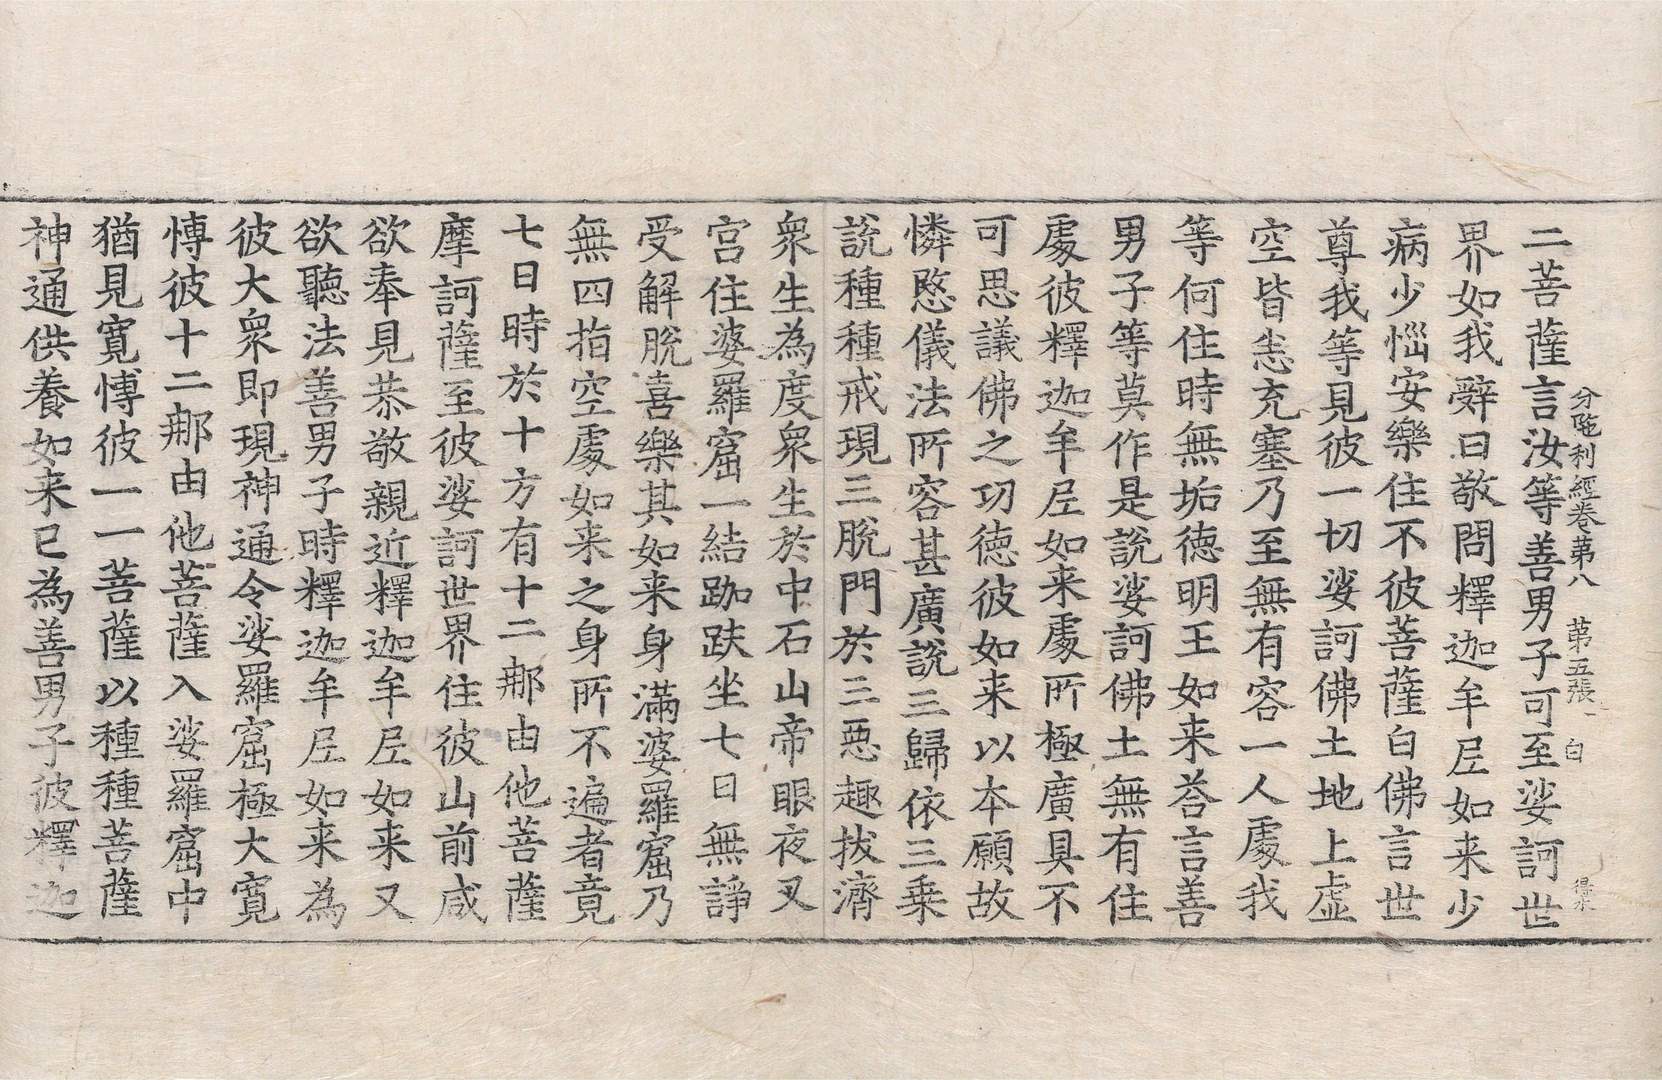 分陁利經卷第八 第五張 白
二菩薩言汝等善男子可至娑訶世
界如我辭曰敬問釋迦牟尼如来少
病少惱安樂住不彼菩薩白佛言世
尊我等見彼一切娑訶佛土地上虛
空皆悉充塞乃至無有容一人處我
等何住時無垢德明王如来荅言善
男子等莫作是說娑訶佛土無有住
處彼釋迦牟尼如来處所極廣具不
可思議佛之功德彼如来以本願故
憐愍儀法所容甚廣說三歸依三乗
說種種戒現三脫門於三惡趣拔濟
衆生為度衆生於中石山帝眼夜叉
宮住婆羅窟一結跏趺坐七日無諍
受解脫喜樂其如来身滿婆羅窟乃
無四指空處如来之身所不遍者竟
七日時於十方有十二那由他菩薩
摩訶薩至彼娑訶世界住彼山前咸
欲奉見恭敬親近釋迦牟尼如来又
欲聽法善男子時釋迦牟尼如来為
彼大衆即現神通令娑羅窟極大寬
博彼十二那由他菩薩入娑羅窟中
猶見寬博彼一一菩薩以種種菩薩
神通供養如来已為善男子彼釋迦